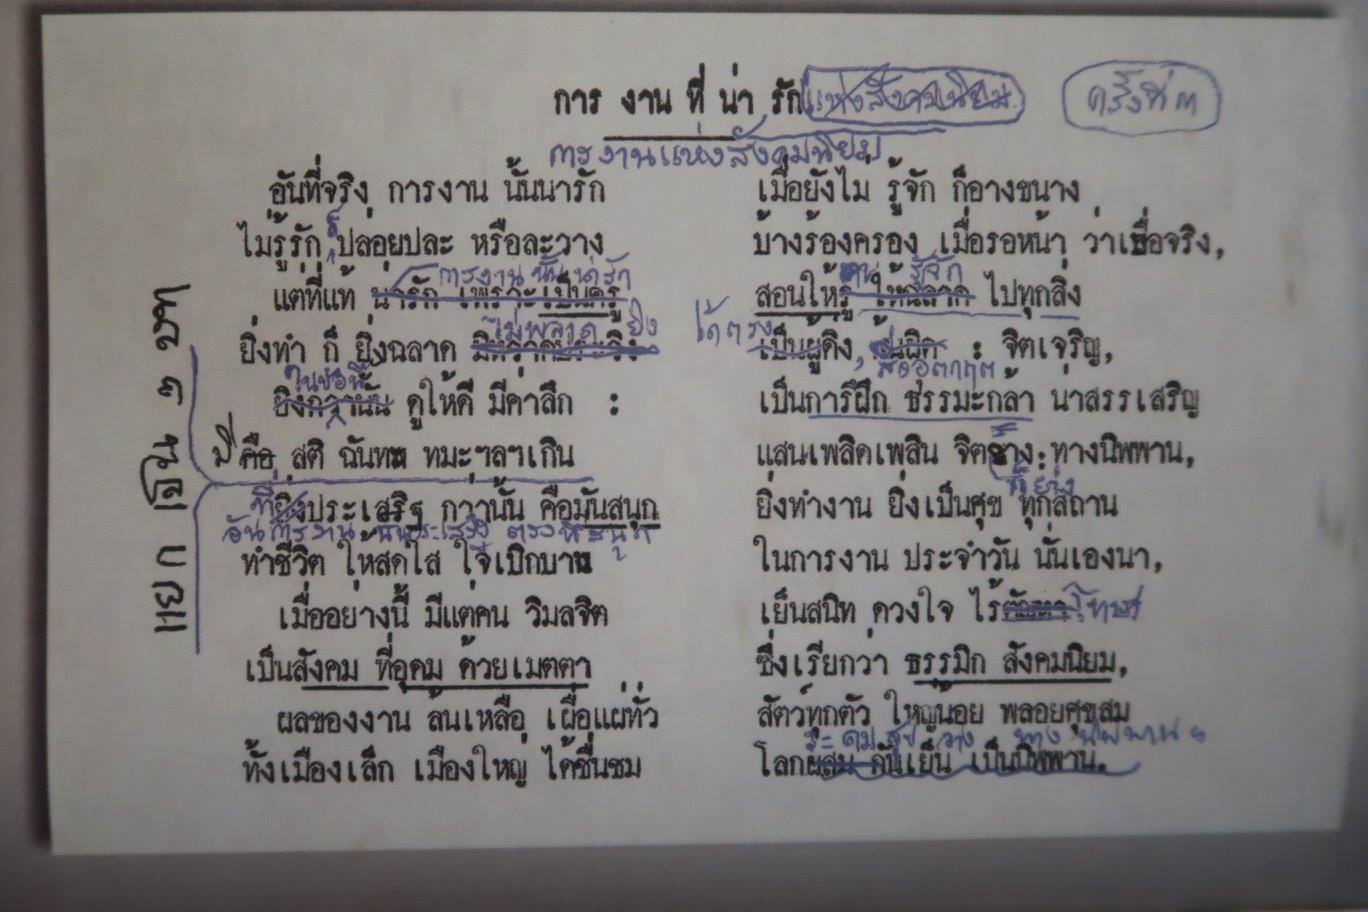 การ งาน ที่ น่า รัก แห่งสังคมนิยม ครั้งที่ ๓
การงานแห่งสังคมนิยม
อันที่จริง การงาน นั้นน่ารัก เมื่อยังไม่ รู้จัก ก็อางขนาง
ก็
ไม่รู้รัก ปล่อยปละ หรือละวาง บ้างร้องครอง เมื่อรอหน้า ว่าเชื่อจริง,
การงานนั้น น่ารัก คน รู้จัก
แต่ที่แท้ น่ารัก เพราะเป็นครู สอนให้รู้ ให้ฉลาด ไปทุกสิ่ง
ไม่พลาด ยิ่ง ได้ตรง
ยิ่งทำ ก็ ยิ่งฉลาด เป็นผู้ดิ่ง, : จิตเจริญ,
ในข้อนี้
ยิ่งกว่านั้น ดูให้ดี มีค่าลึก : เป็นการฝึก ธรรมะกล้า น่าสรรเสริญ
มี คือ สติ ฉันทะ ทมะฯลฯเกิน แสนเพลิดเพลิน จิต ทางนิพพาน,
ที่ยิ่งประเสริฐ กว่านั้น คือมันสนุก ยิ่งทำงาน ยิ่งเป็นสุข ทุกสถาน
อันการงาน ประเสริฐ ตรงที่สนุก
ทำชีวิต ให้สดใส ใจเบิกบาน ในการงาน ประจำวัน นั่นเองนา,
เมื่ออย่างนี้ มีแต่คน วิมลจิต เย็นสนิท ดวงใจ ไร้ โทษา
เป็นสังคม ที่อุดม ด้วยเมตตา ซึ่งเรียกว่า ธรรมิก สังคมนิยม,
ผลของงาน ล้นเหลือ เผื่อแผ่ทั่ว สัตว์ทุกตัว ใหญ่น้อย พลอยสุขสม
ระดมสุข วาง ทาง นิพพาน ฯ
ทั้งเมืองเล็ก เมืองใหญ่ ได้ชื่นชม โลกผสม กันเย็น เป็นนิพพาน.
แยก โอน ๒ บท